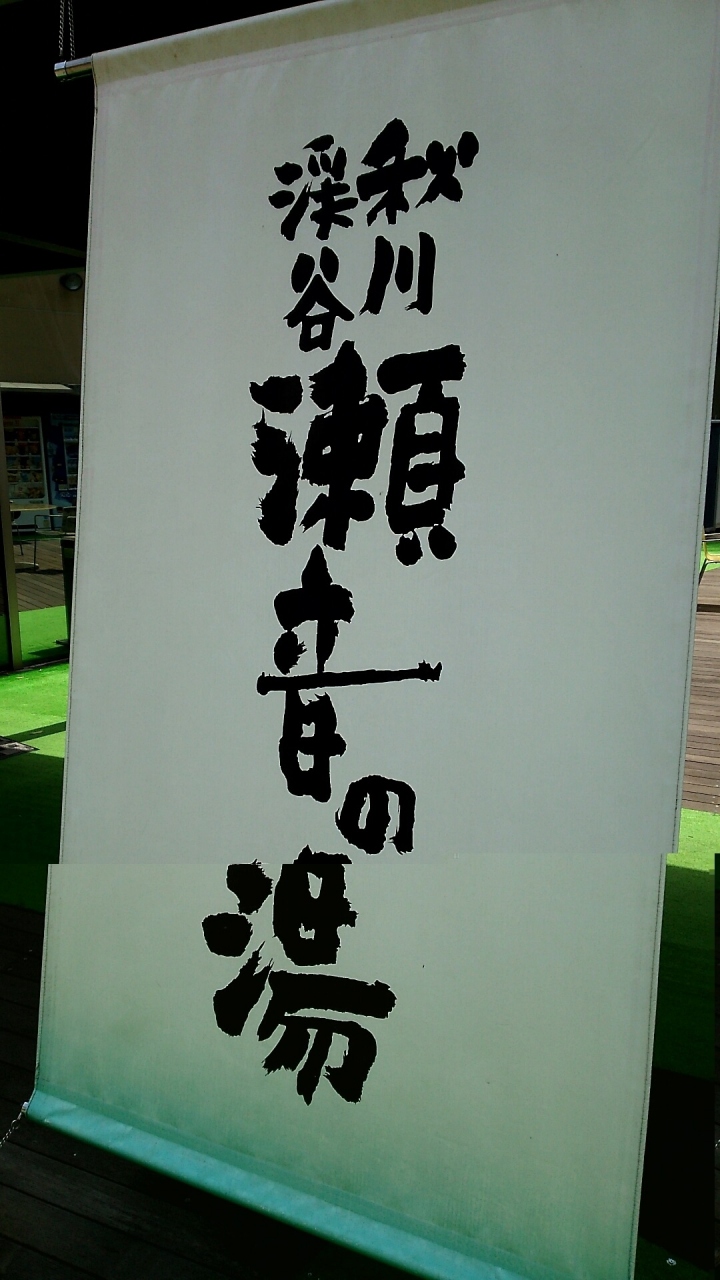 秋川
渓谷
瀬音の湯